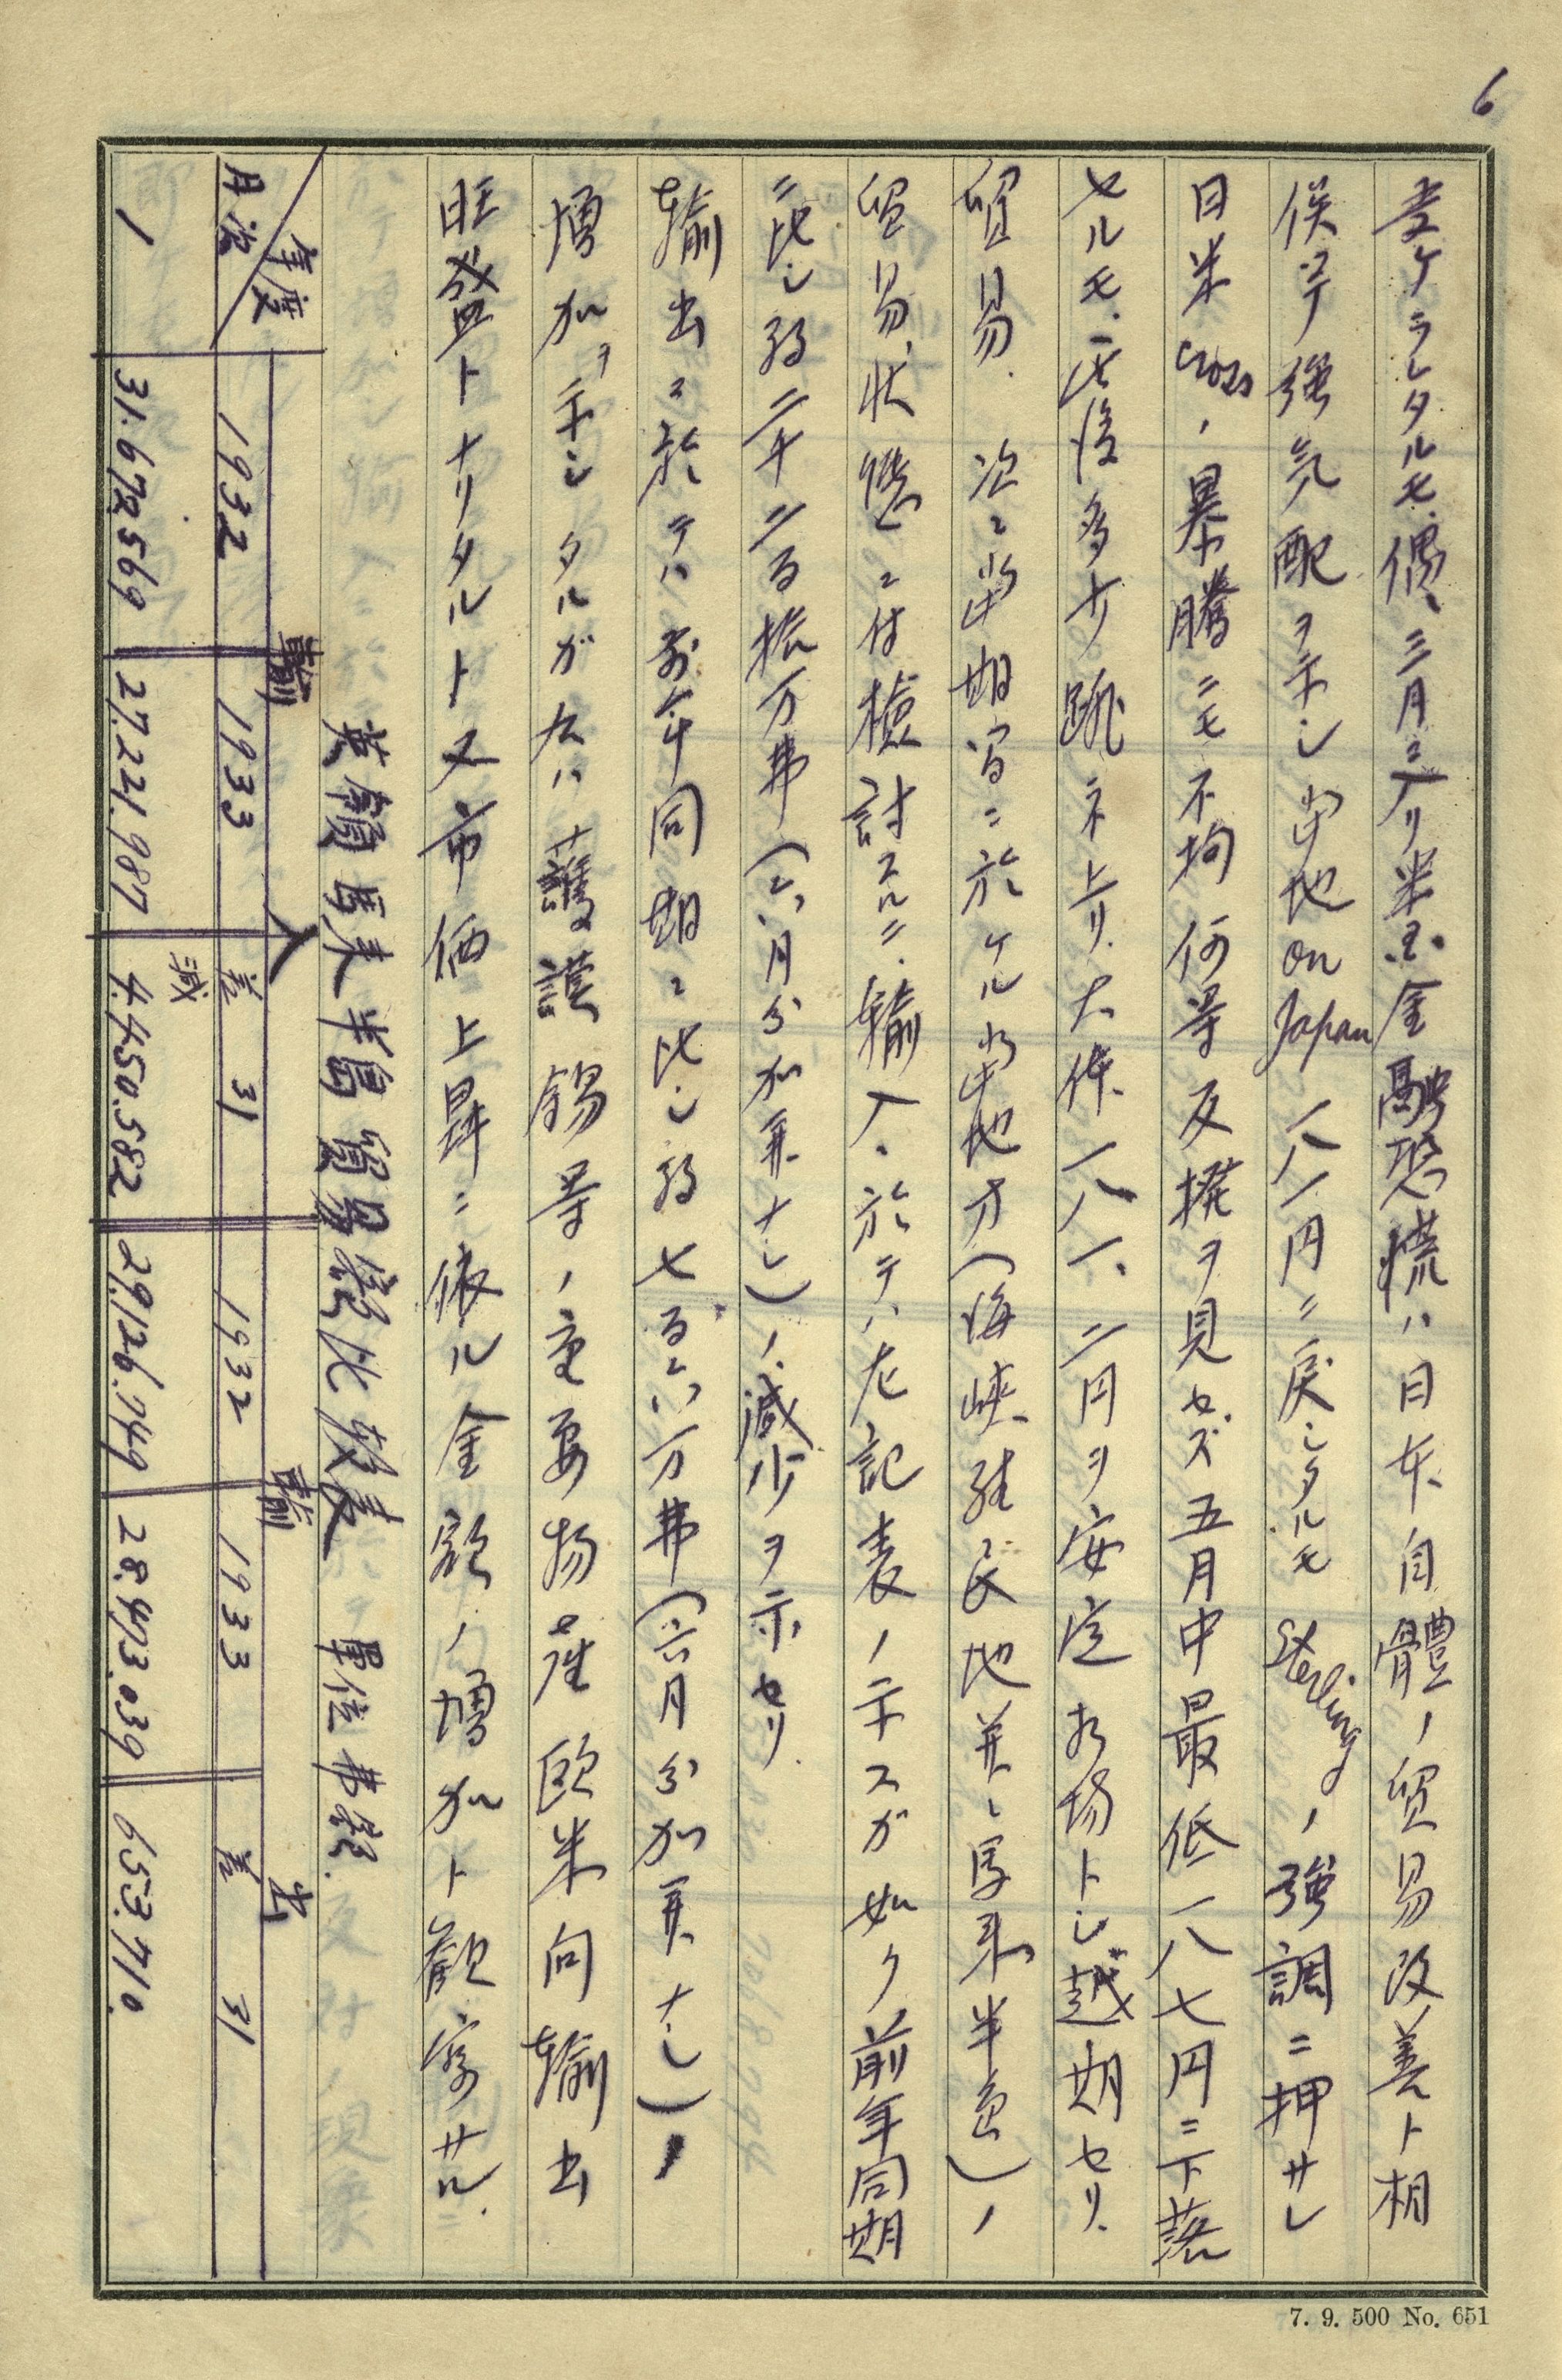 6
受ケラレタルモ、偶、三月ニ入リ米国金融恐慌ハ日本自體ノ貿易改善ト相
俟ッテ強気配ヲ示シ當地on Japan 一八一円ニ戻シタルモ Sterlingノ強調ニ押サレ
日米crossノ暴騰ニモ不拘何等反撥ヲ見セズ五月中最低一八七円ニ下落
セルモ、其後多少跳ネ上リ、大体一八一、二円ヲ安定相場トシ越期セリ、
貿易、次ニ當期間ニ於ケル當地方(海峡殖民地並ニ馬来半島)ノ
貿易状態ニ付檢討スルニ、輸入ニ於テハ左記表ノ示スガ如ク前年同期
ニ比シ約二千二百拾万弗(六月分加算ナシ)ノ減少ヲ示セリ
輸出ニ於テハ前年同期ニ比シ約七百六万弗(六月分加算ナシ)ノ
増加ヲ示シタルガ右ハ護謨錫等ノ重要物産欧米向輸出
旺盛トナリタルト又市価上昇ニ依ル金額ノ増加ト観察サル、
英領馬来半島貿易額比較表 單位弗額.
年度 輸入 輸出
月治 1932 1933 差引 1932 1933 差引
1 31.672.569 27.221.987 減 4.450.582 29.126.749 28.473.039 653.710.
7. 9. 500 No. 651